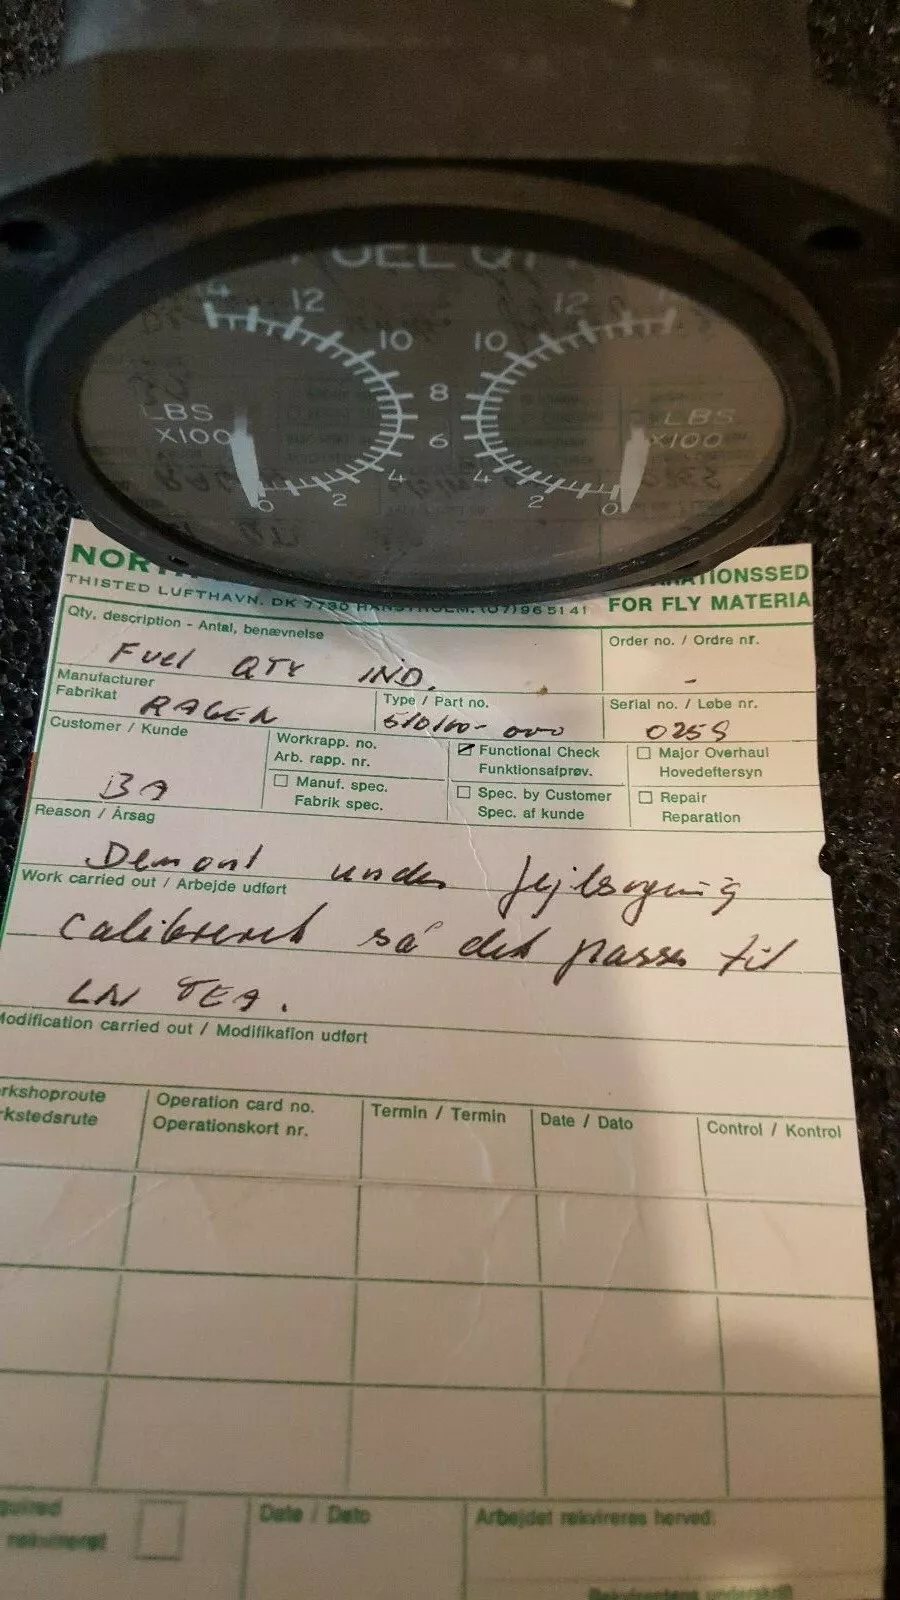 FUEL QT
14 12 12
10 10
8
LBS LBS
X100 X100
6
4 4
2 2
0 0
NORT
THISTED LUFTHAVN, DK 7730 HANSTHOLM, (07) 96 51 41
ATIONSSED
FOR FLY MATERIA
Qty, description - Antal, benævnelse
Fuel QTY IND.
Order no. / Ordre nr.
-
Manufacturer
Fabrikat
RAGEN
Type / Part no.
510100-000
Serial no. / Løbe nr.
Customer / Kunde
BA
Workrapp. no.
Arb. rapp. nr.
Manuf. spec.
Fabrik spec.
Functional Check
Funktionsafprøv.
Spec. by Customer
Spec. af kunde
Major Overhaul
Hovedeftersyn
Repair
Reparation
Reason / Årsag
Demont under fejlsøgning
Work carried out / Arbejde udført
calibreret så det passer til
LN TEA.
Modification carried out / Modifikation udført
rkshoproute
rkstedsrute
Operation card no.
Operationskort nr.
Termin / Termin
Date / Dato
Control / Kontrol
quired
rekvireret
Date / Dato
Arbejdet rekvireres herved:
Rekvirentens underskrift